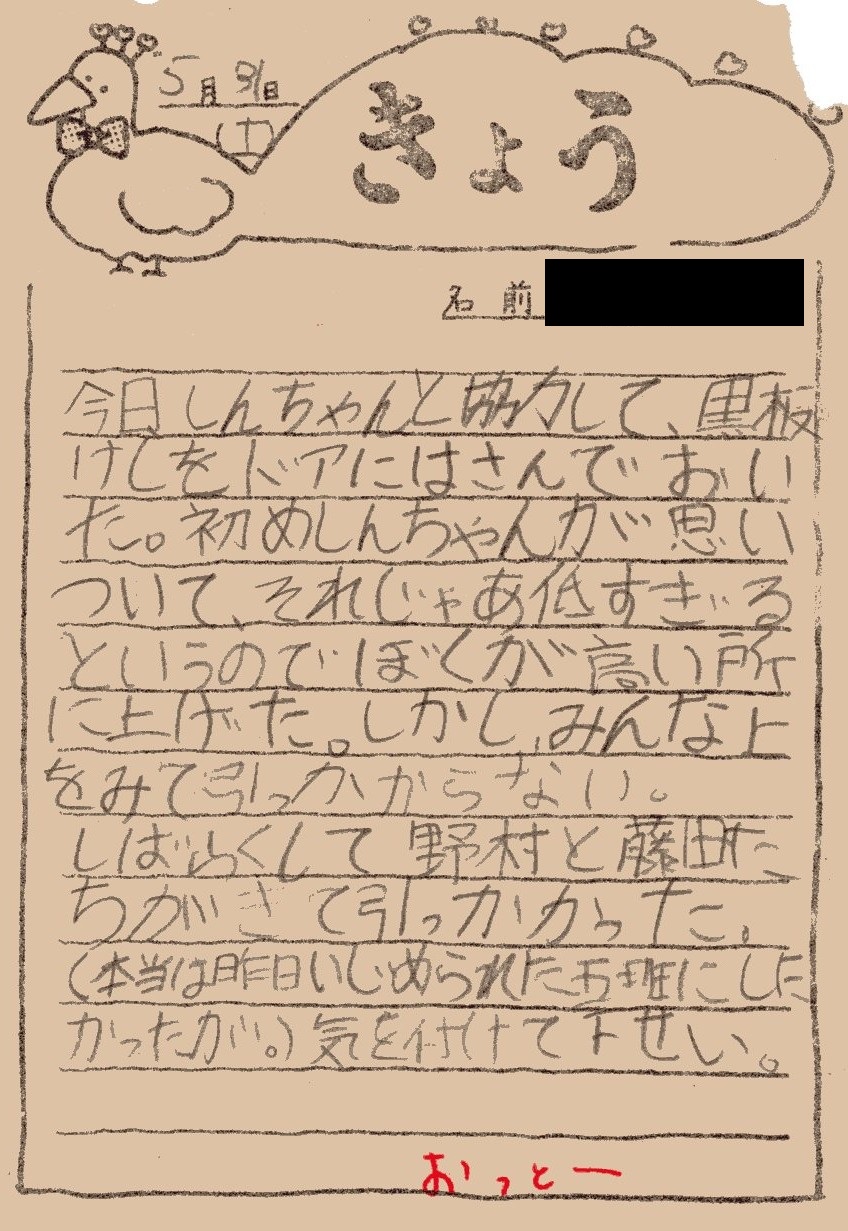 5月31日
(土)
きょう
名前
今日しんちゃんと協力して、黒板
けしをドアにはさんでおい
た。初めしんちゃんが思い
ついて、それじゃあ低すぎる
というのでぼくが高い所
に上げた。しかし、みんな上
をみて引っかからない。
しばらくして野村と藤田た
ちがきて引っかかった。
(本当は昨日いじめられた五班にした
かったが。)気を付けて下せい。
おっとー